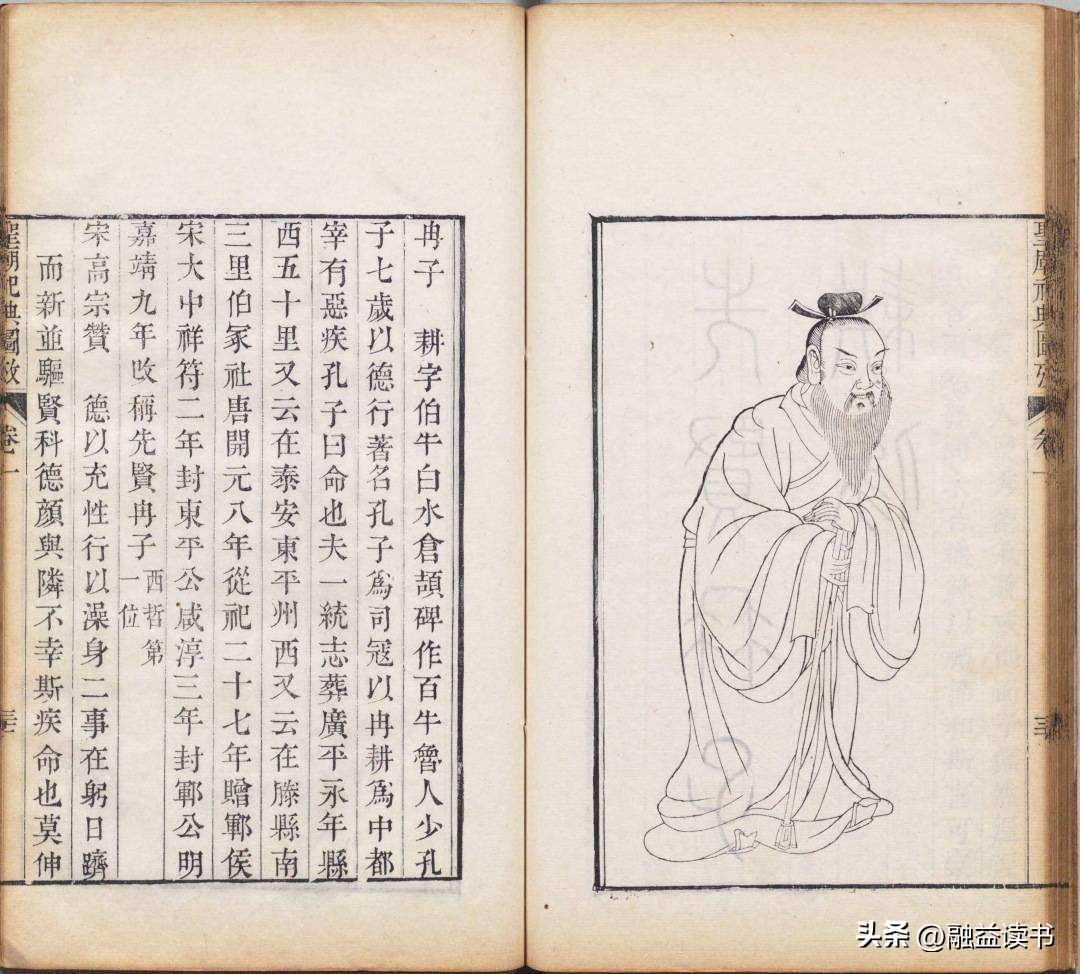 聖廟祀典圖攷 卷一
冉子 耕字伯牛白水倉頡碑作百牛魯人少孔
子七歲以德行著名孔子爲司寇以冉耕爲中都
宰有惡疾孔子曰命也夫一統志葬廣平永年縣
西五十里又云在泰安東平州西又云在滕縣南
三里伯冢社唐開元八年從祀二十七年贈鄆侯
宋大中祥符二年封東平公咸淳三年封鄆公明
嘉靖九年改稱先賢冉子西哲第一位
宋高宗贊 德以充性行以澡身二事在躬日躋
而新並驅賢科德顏與隣不幸斯疾命也莫伸
聖廟祀典圖攷 卷一
头条 @融益读书